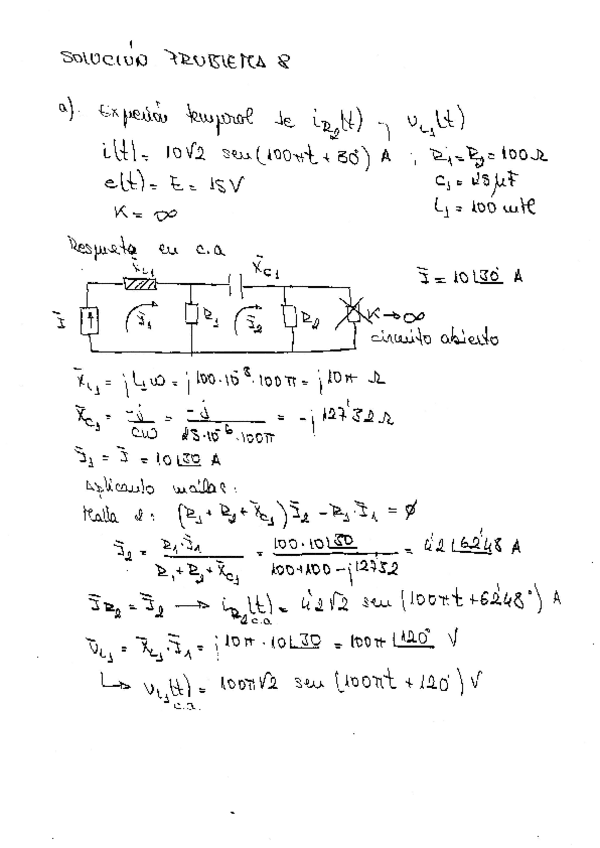 SOLUCIÓN PROBLEMA 8
a). Expresión temporal de i_R2(t) y u_L1(t)
i(t) = 10√2 sen(100πt + 30°) A ; R1 = R2 = 100 Ω
e(t) = E = 15V C1 = 25 μF
K = ∞ L1 = 100 mH
Respuesta en c.a
X̄_L1 X̄_C1 Ī = 10∠30° A
Ī Ī1 R1 Ī2 R2 K→∞
circuito abierto
X̄_L1 = jL1ω = j100·10⁻³·100π = j10π Ω
X̄_C1 = -j/Cω = -j/25·10⁻⁶·100π = -j127'32 Ω
Ī1 = Ī = 10∠30 A
Aplicando mallas:
Malla 2: (R1 + R2 + X̄_C1) Ī2 - R1·Ī1 = ∅
Ī2 = R1·Ī1/R1 + R2 + X̄_C1 = 100·10∠30/100+100-j127'32 = 4'2∠62'48 A
Ī_R2 = Ī2 → i_R2(t) c.a = 4'2√2 sen(100πt + 62'48°) A
Ū_L1 = X̄_L1·Ī1 = j10π·10∠30 = 100π∠120° V
↳ u_L1(t) c.a. = 100π√2 sen(100πt + 120°) V